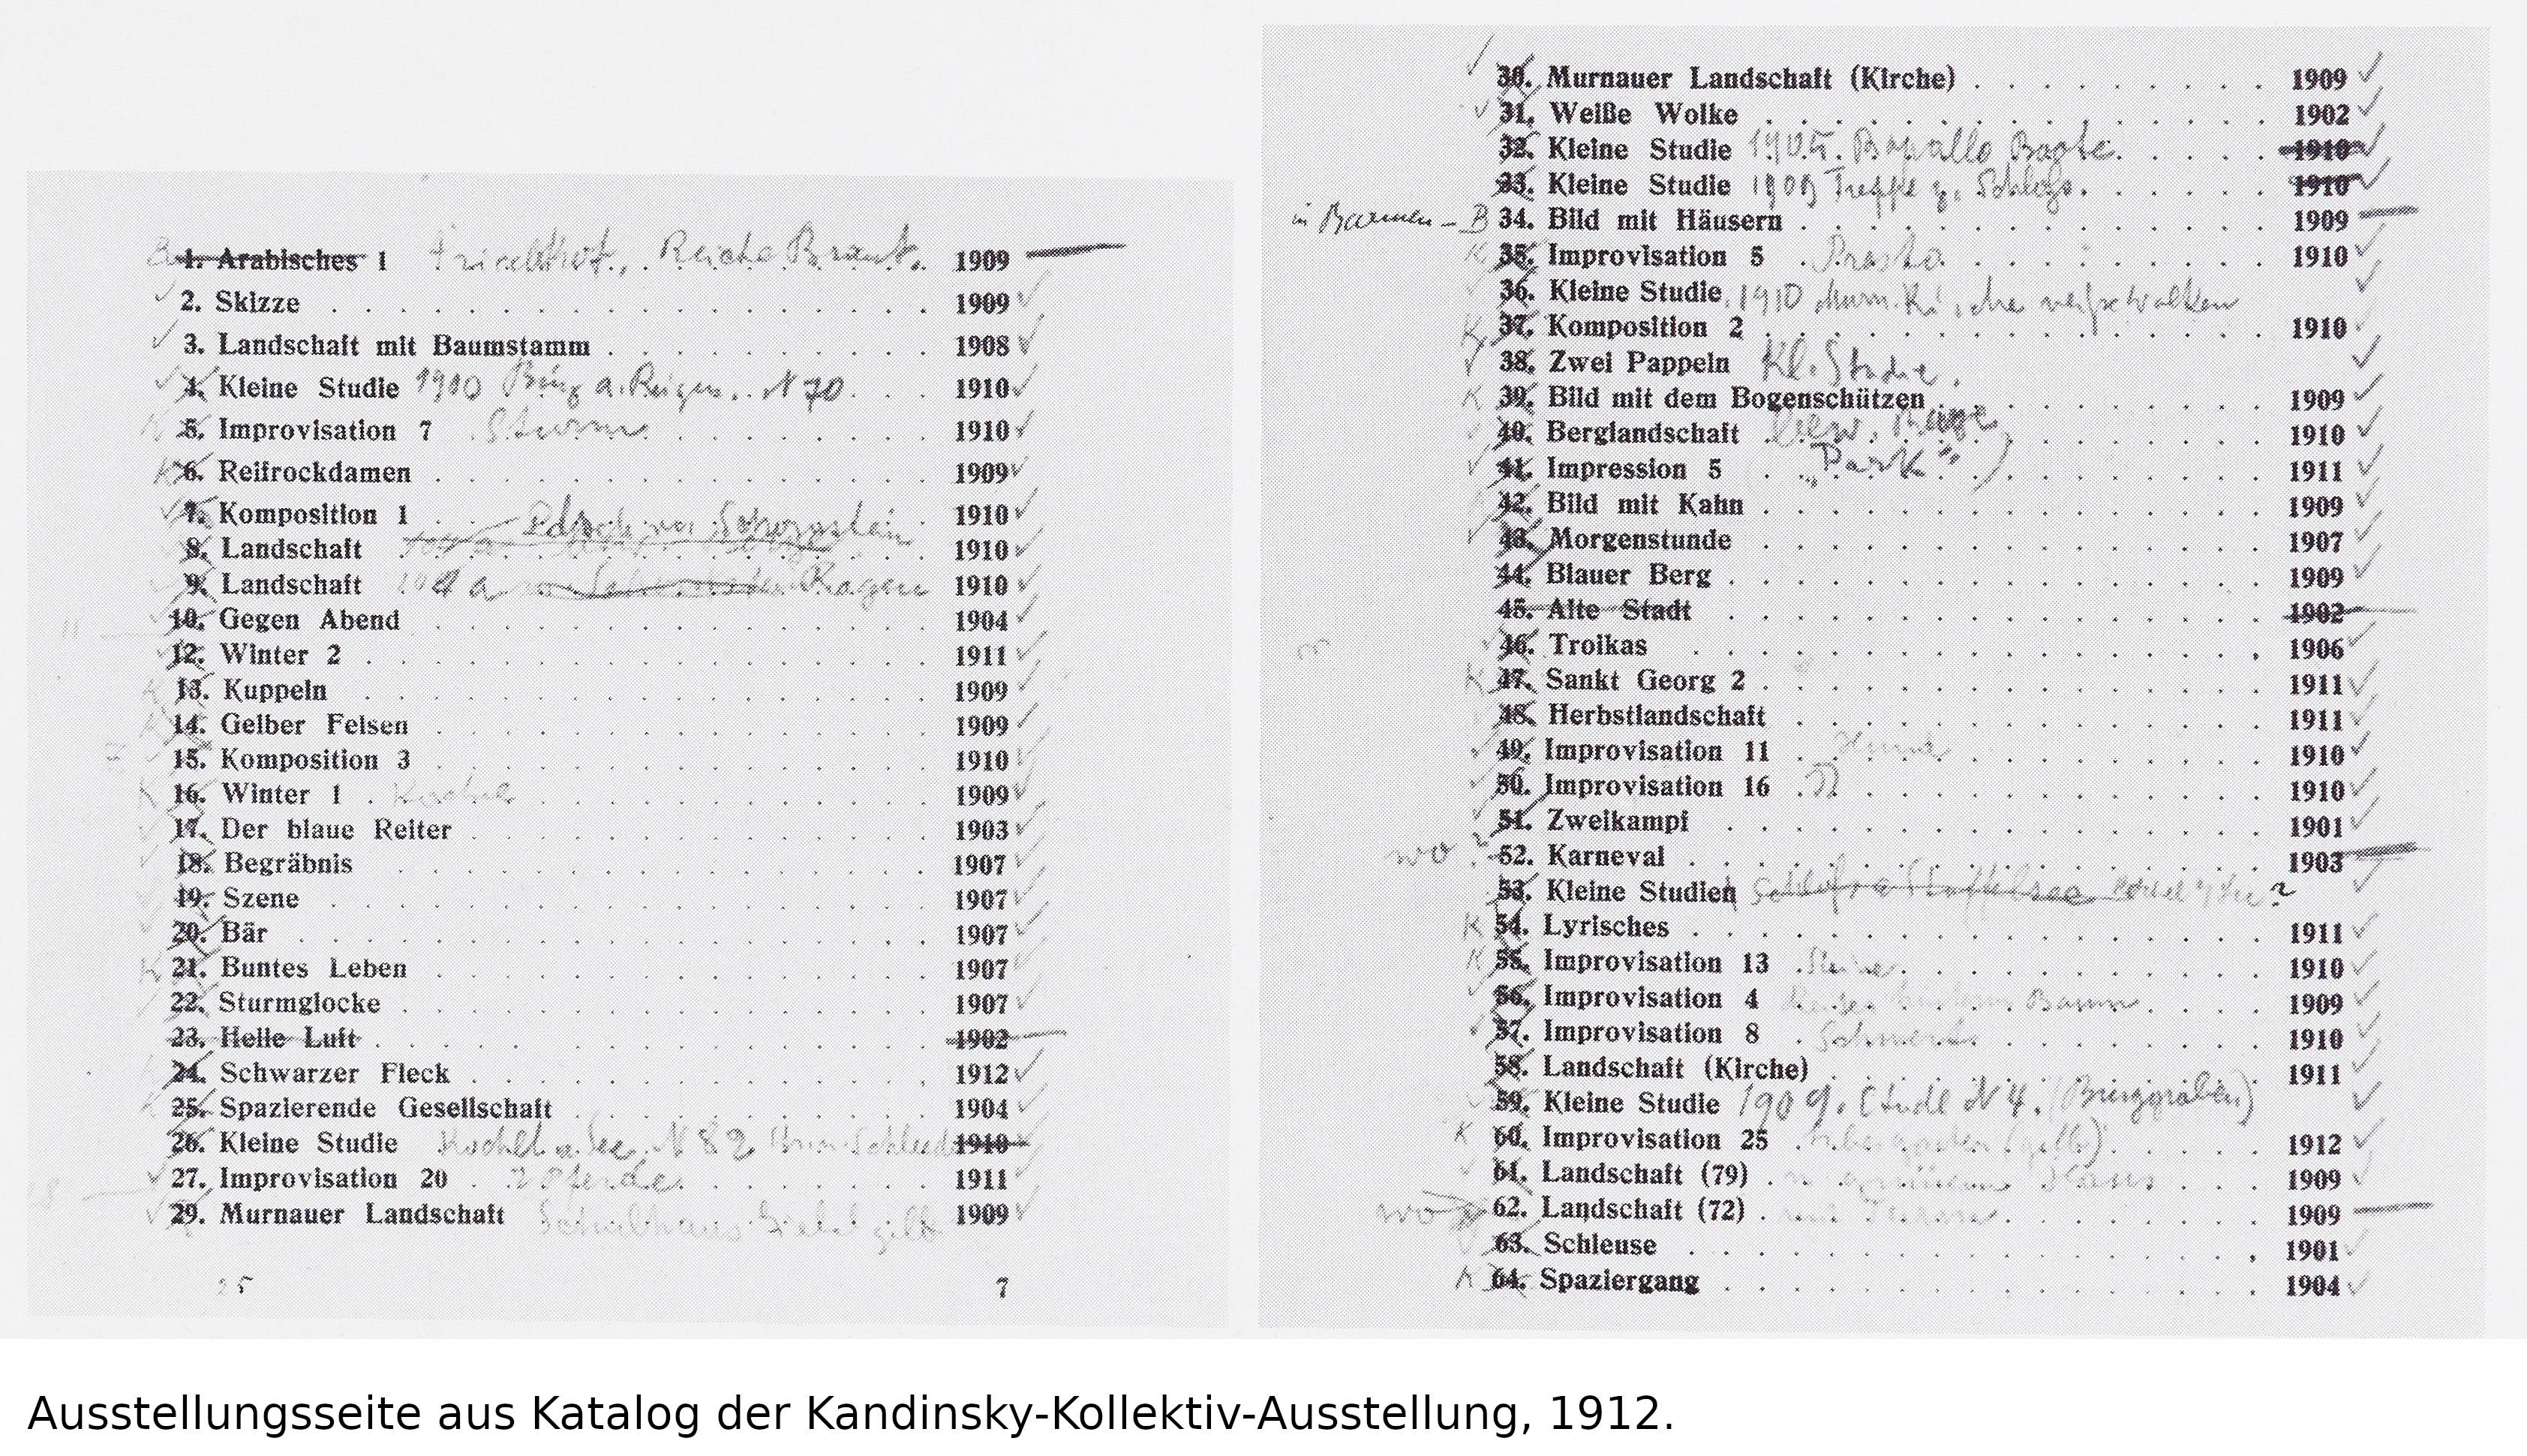 1. Arabisches 1 Friedhof, Reiche Braut. 1909
2. Skizze 1909
3. Landschaft mit Baumstamm 1908
4. Kleine Studie 1910 N 70 1910
5. Improvisation 7 Sturm 1910
6. Reifrockdamen 1909
7. Komposition 1 1910
8. Landschaft 1910
9. Landschaft 1910
10. Gegen Abend 1904
12. Winter 2 1911
13. Kuppeln 1909
14. Gelber Felsen 1909
15. Komposition 3 1910
16. Winter 1 Kochel 1909
17. Der blaue Reiter 1903
18. Begräbnis 1907
19. Szene 1907
20. Bär 1907
21. Buntes Leben 1907
22. Sturmglocke 1907
23. Helle Luft 1902
24. Schwarzer Fleck 1912
25. Spazierende Gesellschaft 1904
26. Kleine Studie Kochel a. See N 82 1910
27. Improvisation 20 2 Pferde 1911
29. Murnauer Landschaft Schulhaus Giebel gelb 1909
25
7
30. Murnauer Landschaft (Kirche) 1909
31. Weiße Wolke 1902
32. Kleine Studie 1905. Rapallo Boote 1910
33. Kleine Studie 1909 Treppe z. Schloß. 1910
in Barmen – B 34. Bild mit Häusern 1909
35. Improvisation 5 1910
36. Kleine Studie 1910
37. Komposition 2 1910
38. Zwei Pappeln Kl. Studie.
39. Bild mit dem Bogenschützen 1909
40. Berglandschaft 1910
41. Impression 5 „Park“) 1911
42. Bild mit Kahn 1909
43. Morgenstunde 1907
44. Blauer Berg 1909
45. Alte Stadt 1902
46. Troikas 1906
47. Sankt Georg 2 1911
48. Herbstlandschaft 1911
49. Improvisation 11 1910
50. Improvisation 16 1910
51. Zweikampf 1901
wo? 52. Karneval 1903
53. Kleine Studien
54. Lyrisches 1911
55. Improvisation 13 1910
56. Improvisation 4 Baum 1909
57. Improvisation 8 Schwert 1910
58. Landschaft (Kirche) 1911
59. Kleine Studie 1909. N 4. (Burggraben)
60. Improvisation 25 1912
61. Landschaft (79) m grünem Haus 1909
wo 62. Landschaft (72) 1909
63. Schleuse 1901
64. Spaziergang 1904
Ausstellungsseite aus Katalog der Kandinsky-Kollektiv-Ausstellung, 1912.